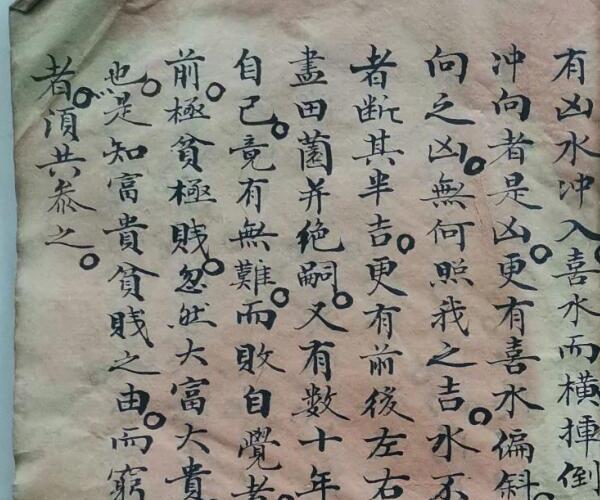 有凶水冲入喜水而橫揷倒
冲向者是凶更有喜水偏斜
向之凶無何照我之吉水不
者斷其半吉更有前後左右
盡田薗并绝嗣又有數十年
自己竟有無難而敗自覺者
前極貧極賎忽然大富大貴
也是知富貴貧賎之由而窮
者湏共叅之